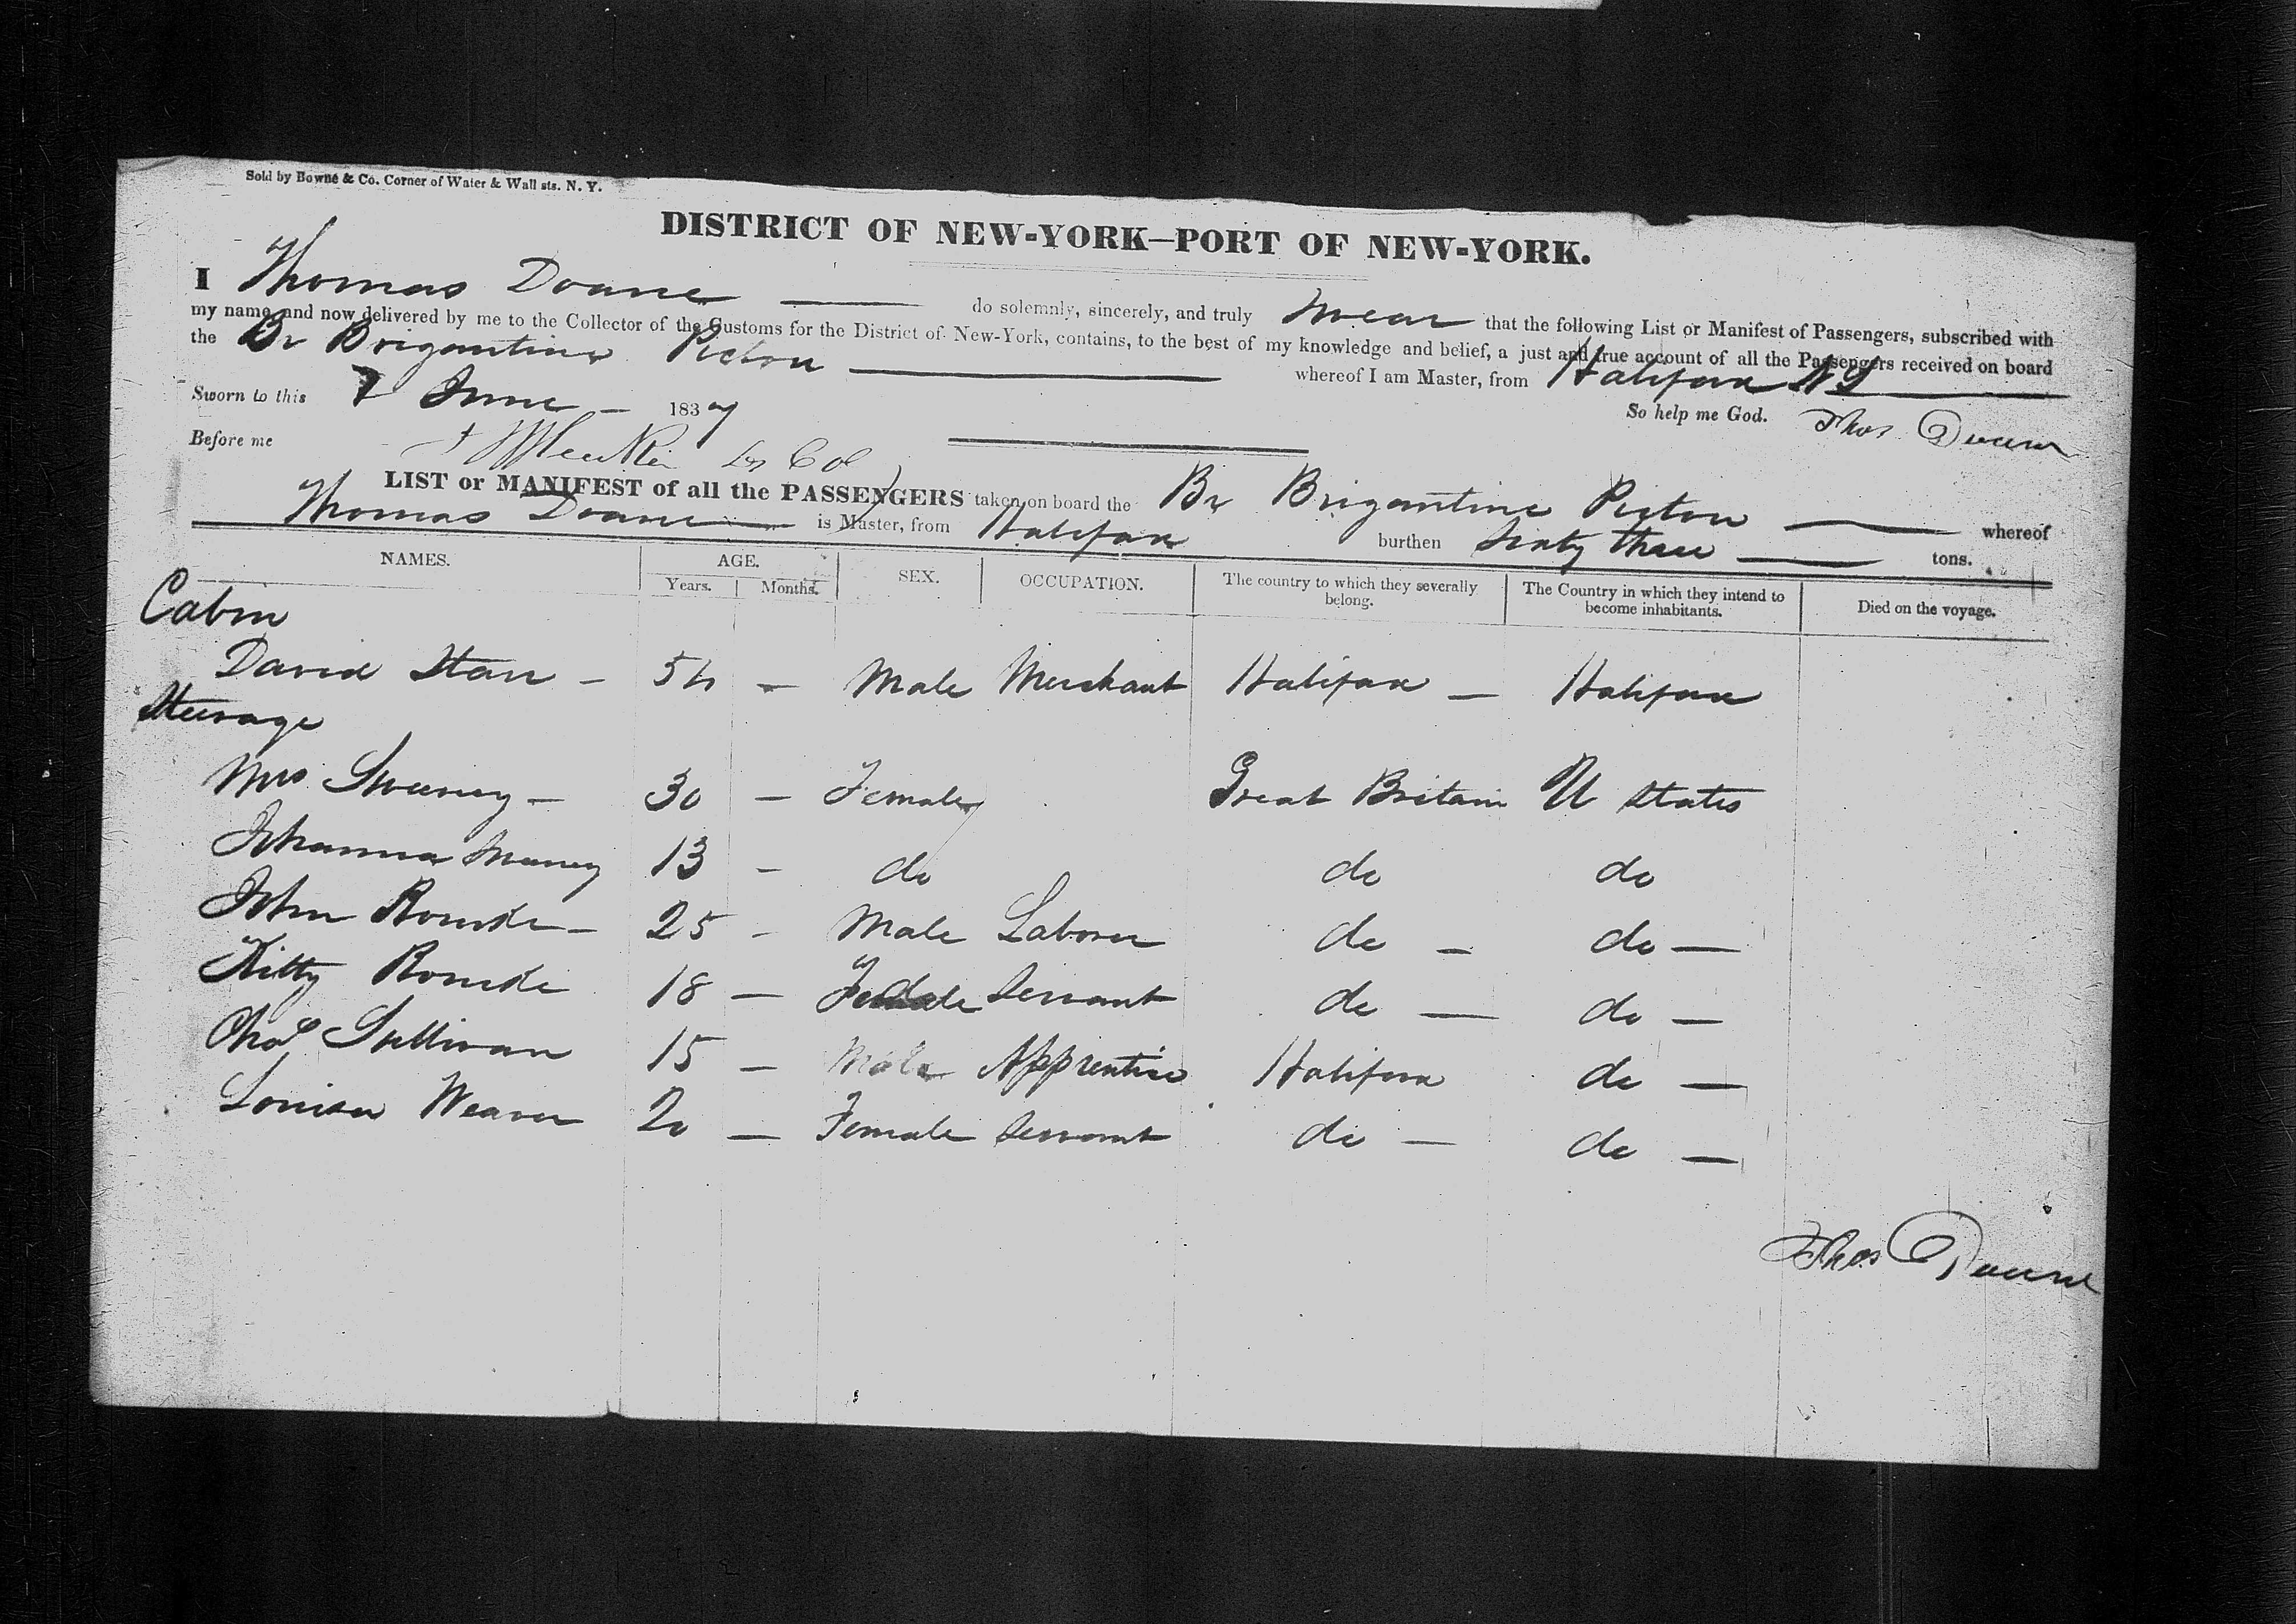 Sold by Bowne & Co. Corner of Water & Wall sts. N. Y.
DISTRICT OF NEW-YORK—PORT OF NEW-YORK.
I Thomas Doane do solemnly, sincerely, and truly swear that the following List or Manifest of Passengers, subscribed with
my name, and now delivered by me to the Collector of the Customs for the District of New-York, contains, to the best of my knowledge and belief, a just and true account of all the Passengers received on board
the Br Brigantine Pictou whereof I am Master, from Halifax NS
Sworn to this 7 June - 1837 So help me God. Thos Doane
Before me Col
LIST or MANIFEST of all the PASSENGERS taken on board the Br Brigantine Pictou whereof
Thomas Doane is Master, from Halifax burthen Sixty three tons.
NAMES. AGE. Years. Months. SEX. OCCUPATION. The country to which they severally belong. The Country in which they intend to become inhabitants. Died on the voyage.
Cabin
David Starr - 54 - Male Merchant Halifax - Halifax
Steerage
Mrs Sweeney - 30 - Female Great Britain U States
Johanna 13 - do do do
John - 25 - Male Laborer do - do -
Kitty 18 - Female Servant do - do -
Chas Sullivan 15 - Male Apprentice Halifax do -
Louisa Weaver 20 - Female Servant do - do -
Thos Doane